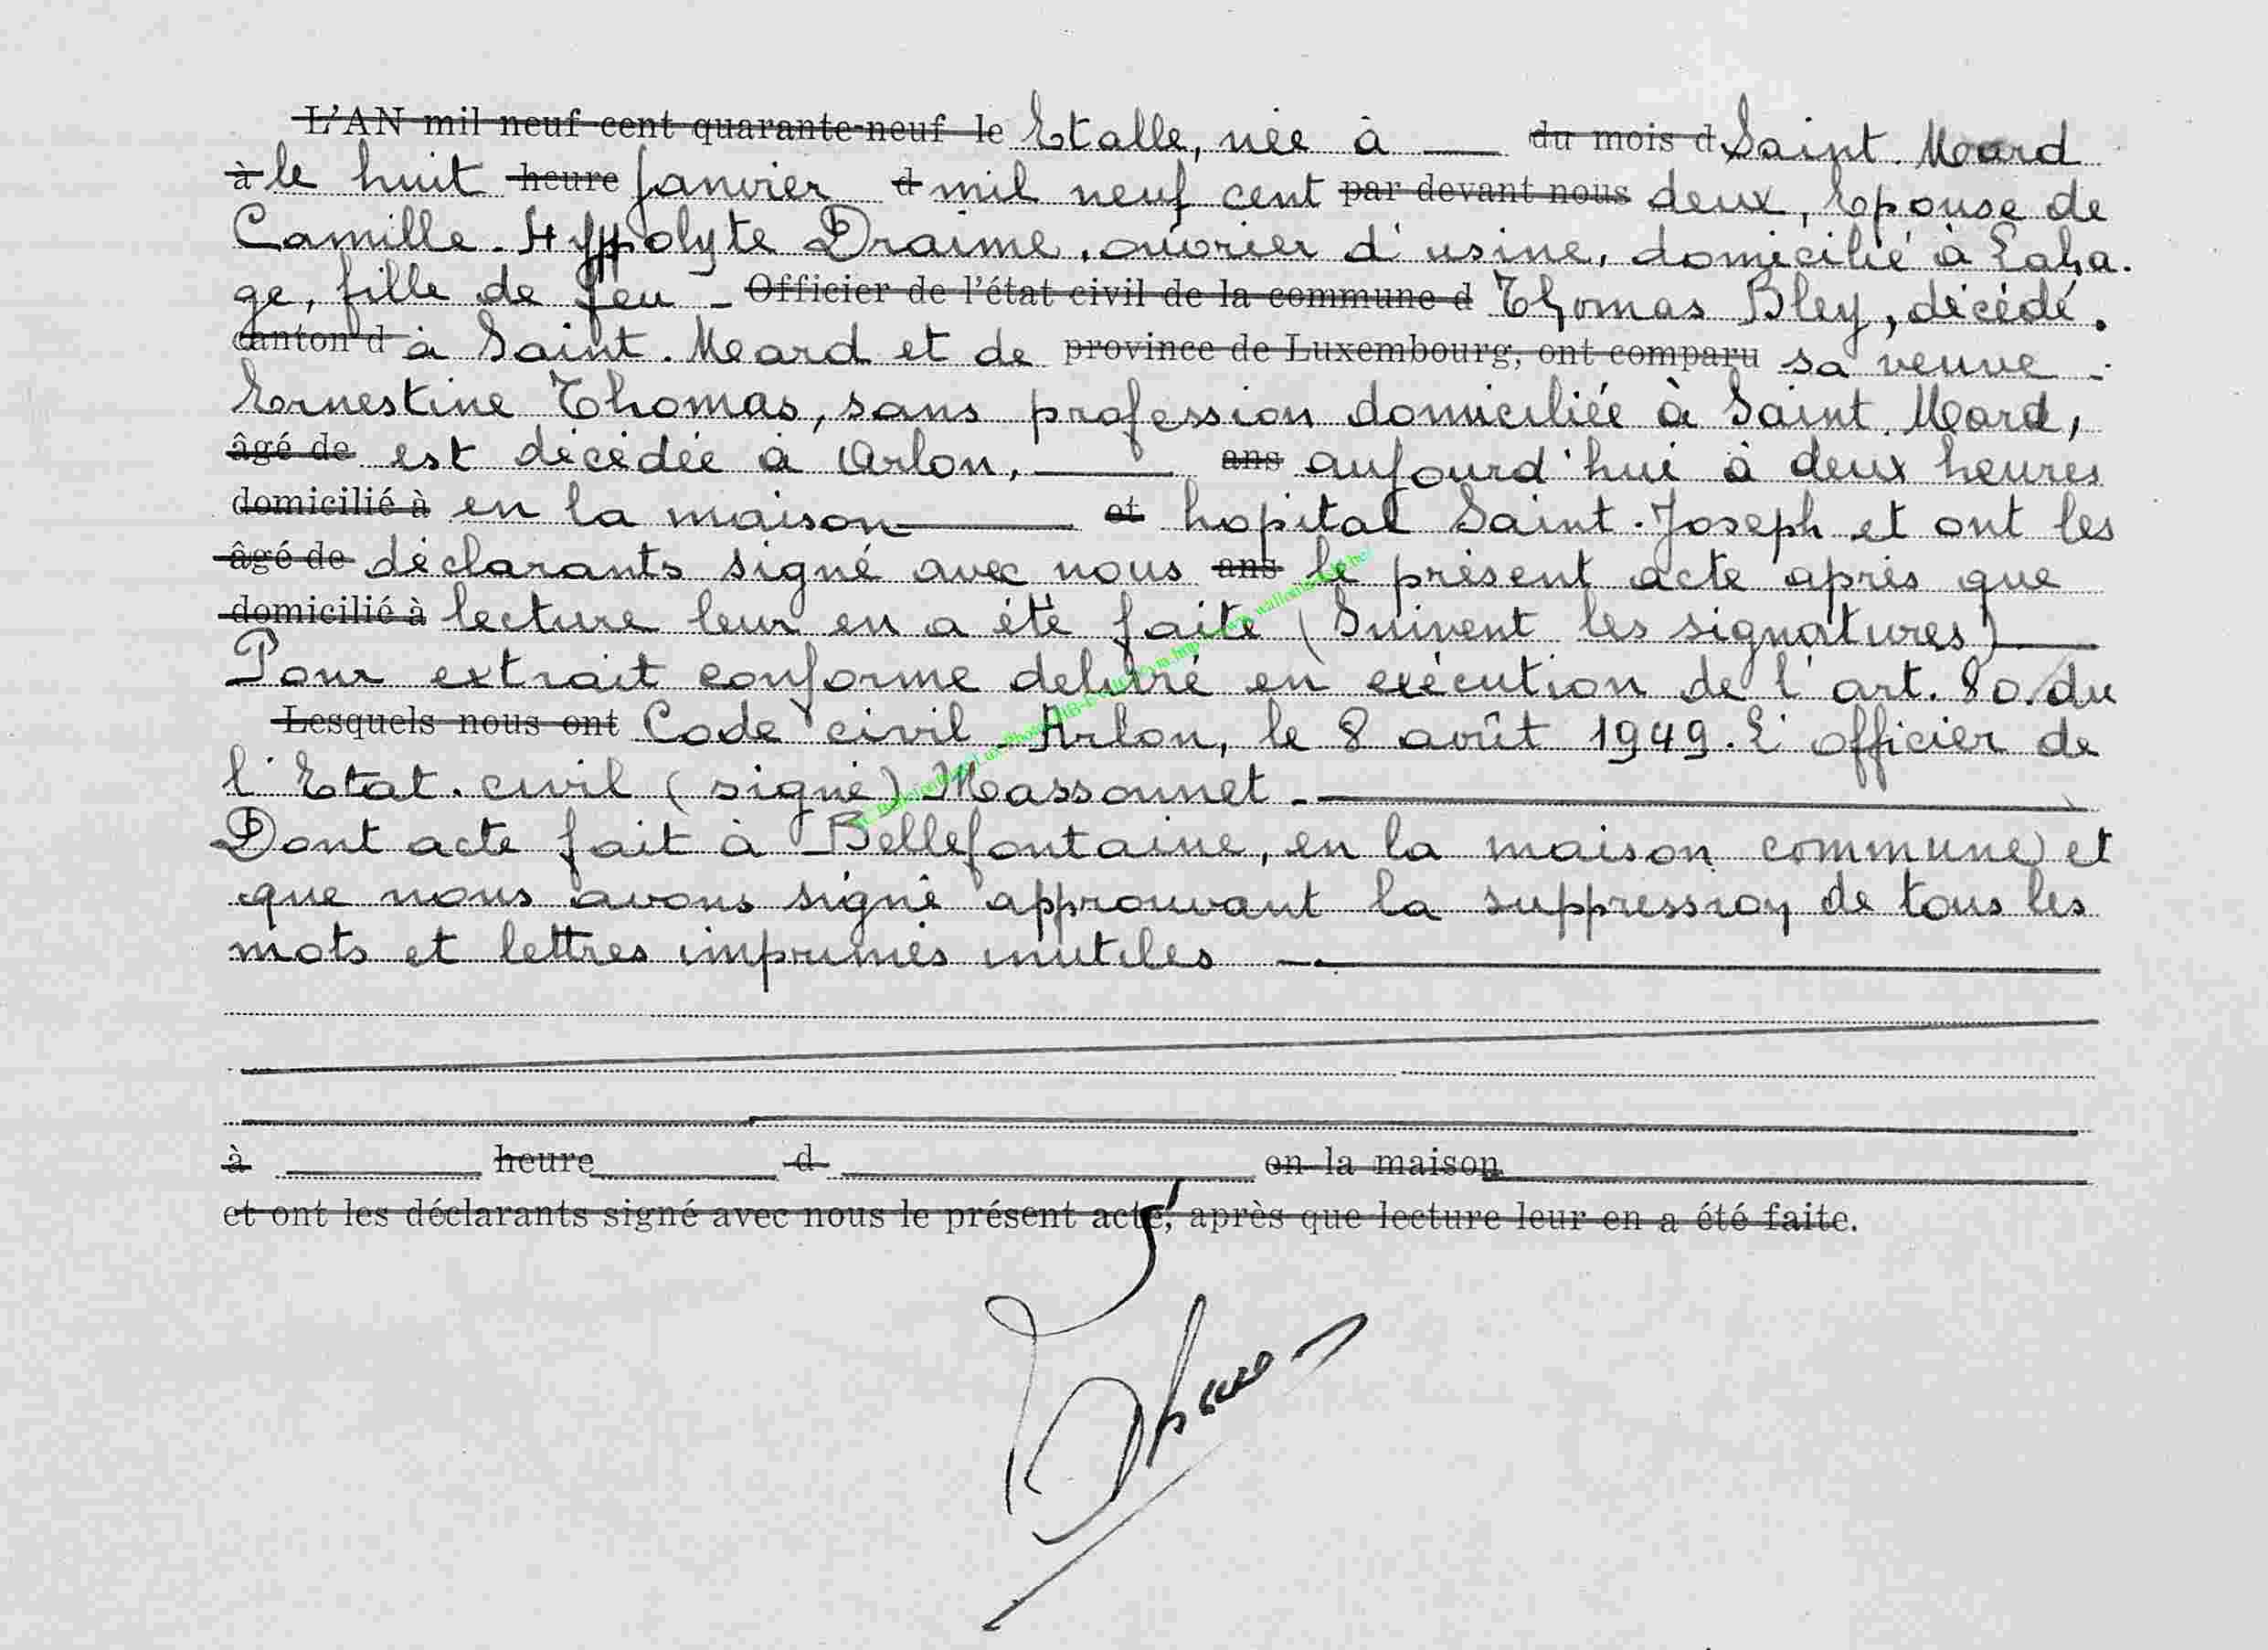 L'AN mil neuf cent quarante-neuf le Etalle, née à — du mois d Saint. Mard
à le huit heure Janvier d mil neuf cent par devant nous deux, Epouse de
Camille-Hyppolyte Draime, ouvrier d'usine, domicilié à Laha-
ge, fille de feu - Officier de l'état civil de la commune d Thomas Bley, décédé.
canton d à Saint. Mard et de province de Luxembourg, ont comparu sa veuve -
Ernestine Thomas, sans profession domiciliée à Saint. Mard,
âgé de est décédée à Arlon, — ans aujourd'hui à deux heures
domicilié à en la maison — et hopital Saint-Joseph et ont les
âgé de déclarants signé avec nous ans le présent acte après que
domicilié à lecture leur en a été faite (Suivent les signatures) —
Pour extrait conforme delivré en exécution de l'art. 80 du
Lesquels nous ont Code civil. Arlon, le 8 août 1949. L'officier de
l'Etat. civil (signé) Massonnet. —
Dont acte fait à Bellefontaine, en la maison commune et
que nous avons signé approuvant la suppression de tous les
mots et lettres imprimés inutiles —
à heure d en la maison
et ont les déclarants signé avec nous le présent acte, après que lecture leur en a été faite.